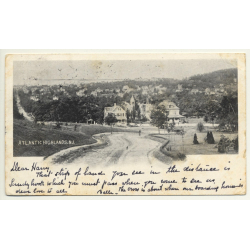 ATLANTIC HIGHLANDS, N.J.
Dear Harry
That strip of land you see in the distance is
Sandy Hook which you must pass when you come to see us
down here to see. Bells. the cross is about where our boarding house is